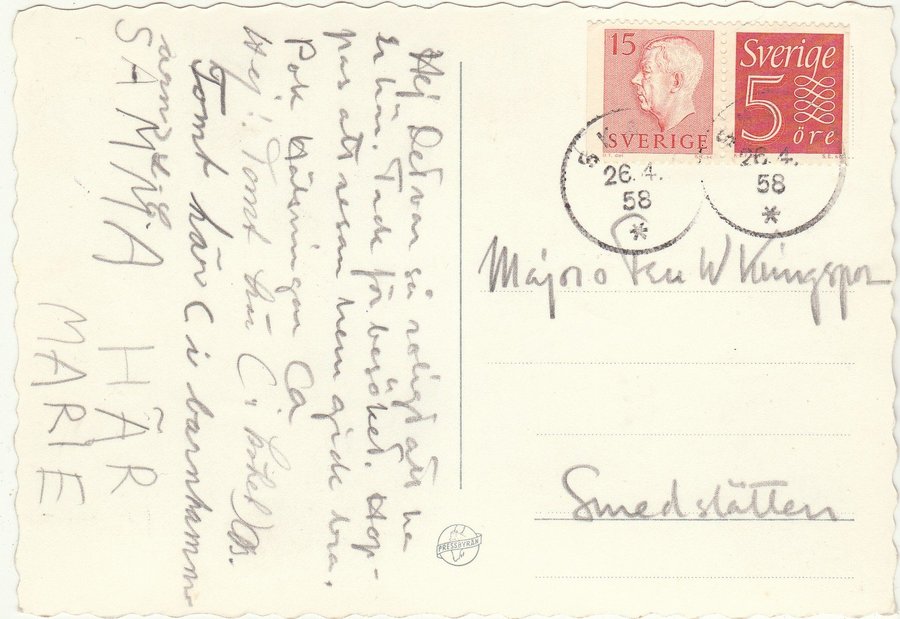 Hej Det var så roligt att ha
er här. Tack för besöket. Hop-
pas att resan hem gick bra.
Hälsningar Ca
Hej! Tomt här C i
Tomt här C i barnkammare
SAMMA HÄR
MARIE
15
SVERIGE
Sverige
5
öre
26.4.
58
*
26.4.
58
*
Major o Fru W Klingspor
Smedstätten
PRESSBYRÅN